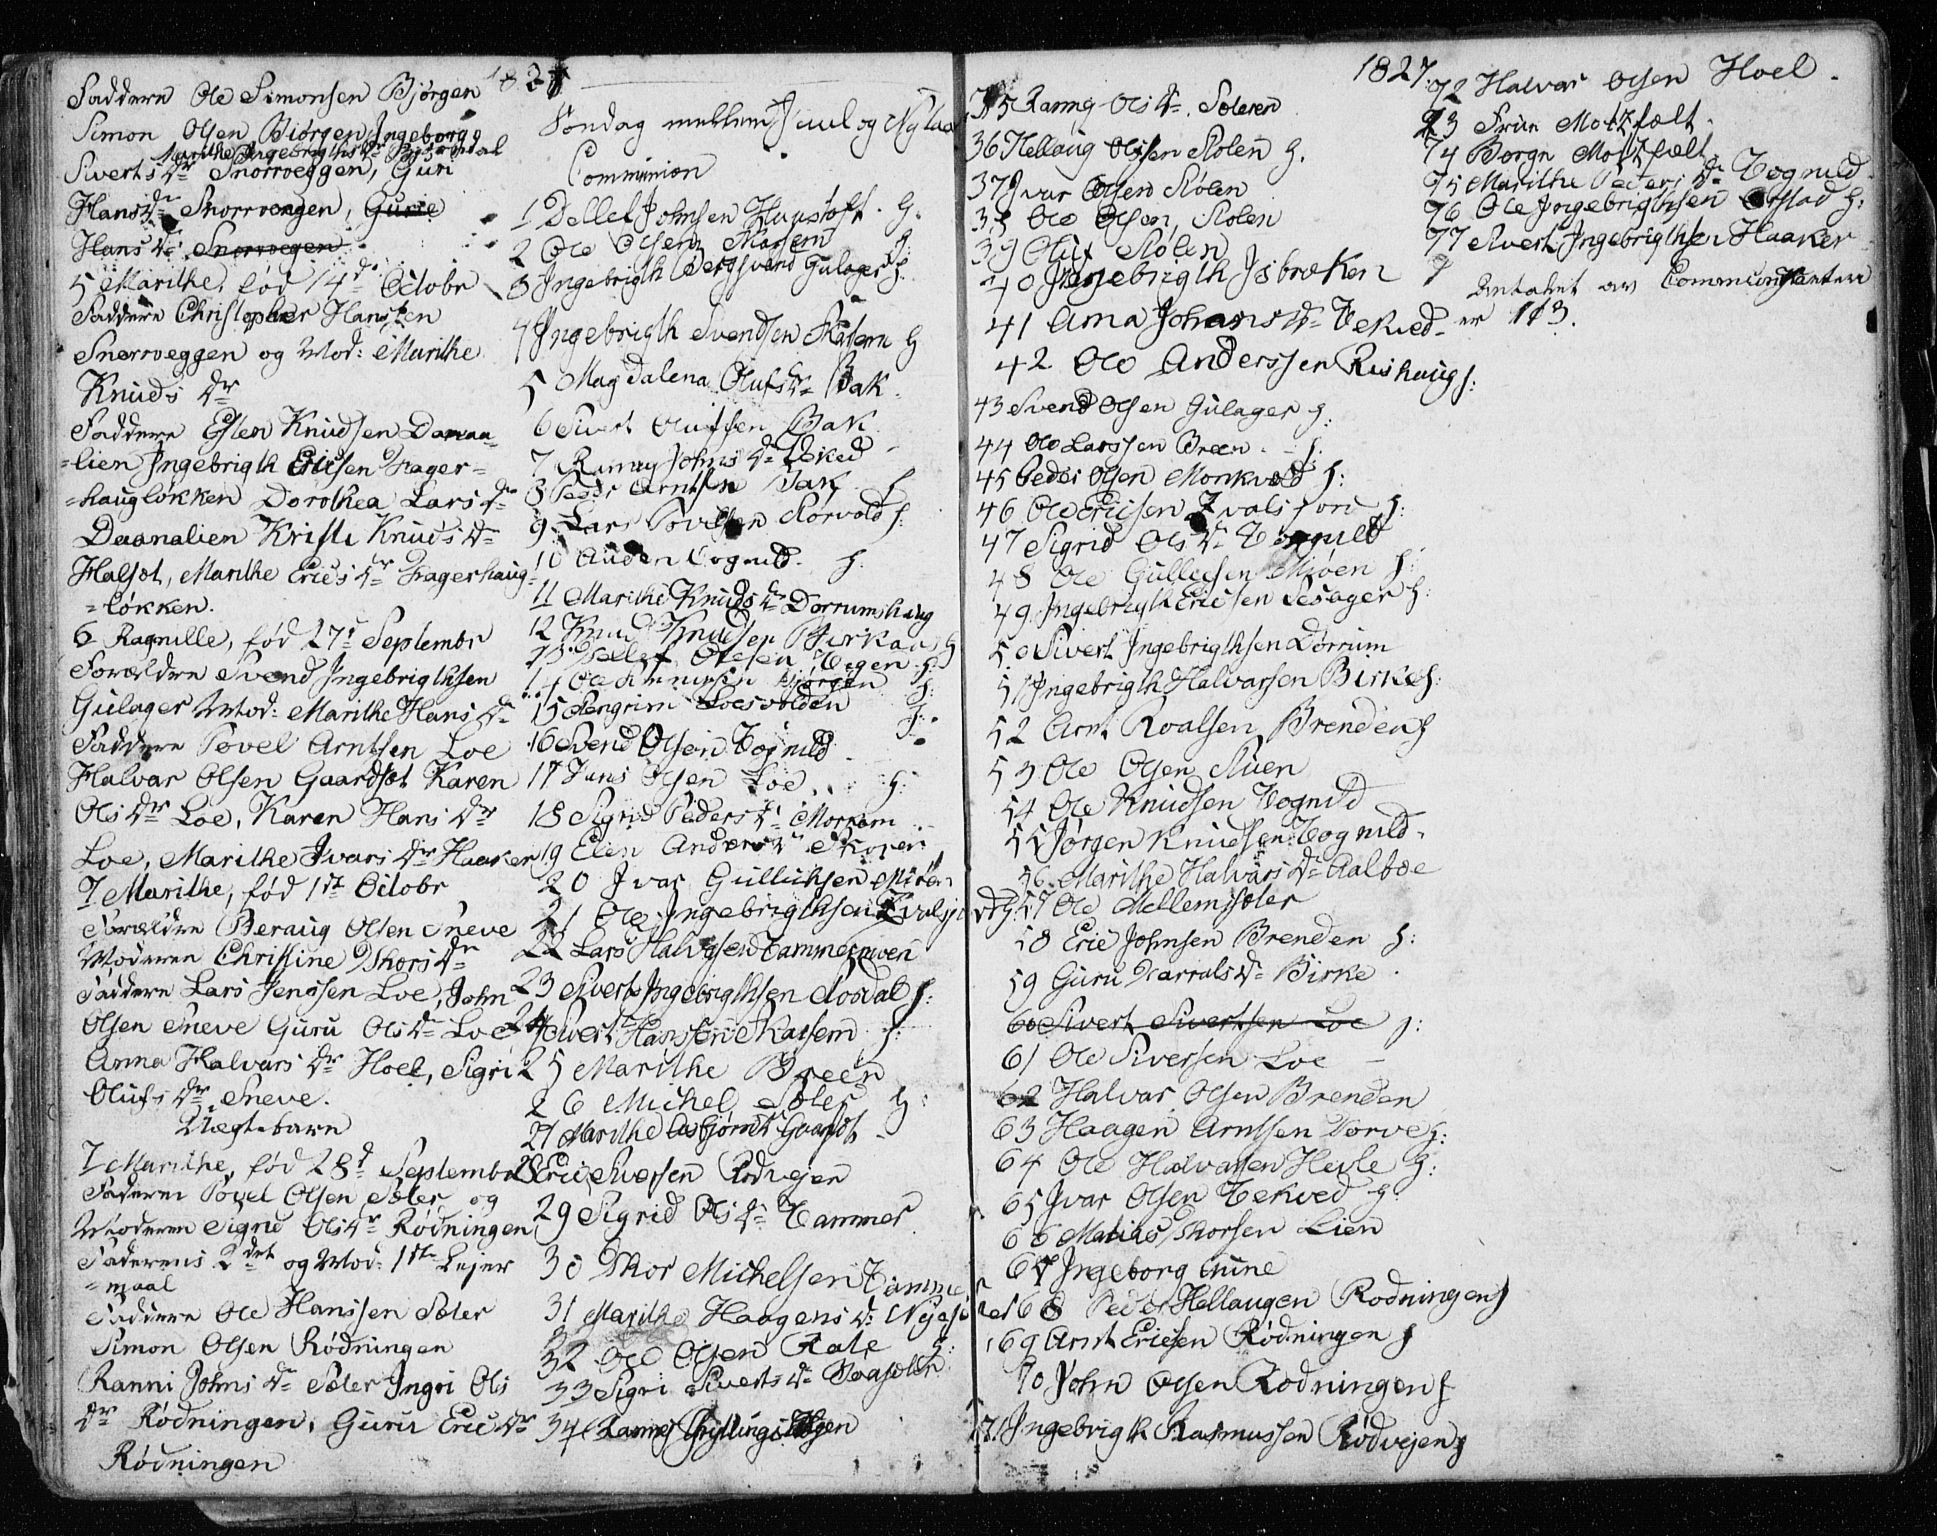 1827
Faddere Ole Simonsen Bjørgen
Simon Olsen Biørgen, Ingeborg
Marithe Ingebrigths dr
Siverts dr Snorroeggen, Guri
Hans dr Snorroengen, Gurie
Hans dr Snorroegen
5 Marithe, fød 14de Octobr
Faddere Christopher Hanssen
Snorroeggen og Mod: Marithe
Knuds dr
Faddere Esten Knudsen
=lien Ingebrigth Ericsen Hager=
=haugløkken Dorothea Lars dr
Daanalien Kristi Knuds dr
Halset, Marithe Erics dr Hagerhaug=
=løkken.
6 Ragnille, fød 27de Septembr
Forældre Svend Ingebrigthsen
Gulager Mod: Marithe Hans dr
Faddere Povel Arntsen Loe
Halvar Olsen Gaardset Karen
Ols dr Loe, Karen Hans dr
Loe, Marithe Ivars dr Haaker
7 Marithe, fød 1ste Octobr
Forældre Beraug Olsen Sneve
Moderen Christine Thors dr
Faddere Lars Jenssen Loe, John
Olsen Sneve Guru Ols dr Loe
Anna Halvars dr Hoel, Sigri
Olufs dr Sneve.
Uægte barn
7 Marithe, fød 28d Septembr
Faderen Povel Olsen Sæter og
Moderen Signe Ols dr Rødningen
Faderens 2det og Mod: 1ste Lejer
=maal
Faddere Ole Hanssen Sæter
Simon Olsen Rødningen
Ranni Johns dr Sæter Ingri Ols
dr Rødningen, Guru Eric dr
Rødningen
Søndag mellem Juul og Nytaar
Communion
1 Dellef Johnsen Haustøft. H.
2 Ole Olsen Skarsem H
3 Ingebrigth Bergsvend Gulager H.
4 Ingebrigth Svendsen Skasem H
5 Magdalena Olufs dr Bak.
6 Sivert Olufsen Bak
7 Ranny Johns dr Tøked
8 Peder Arntsen Bak H
9 Lars Povelsen Rørvold H:
10 Auden Vognild. H.
11 Marithe Knuds dr Dorrumshaug
12 Knud Knudsen Birkan H
13 Dellef Olesen Vegen H:
14 Ole Simensen Bjørgen H:
15 Sengrim Loesvolden H:
16 Svend Olsen Vognild
17 Jens Olsen Loe H:
18 Sigrid Peders dr Morkem
19 Elen Anders dr Skoren
20 Ivar Gullichsen Mioen
21 Ole Ingebrigthsen
22 Lars Halvorsen Tammesmoen
23 Sivert Ingebrigthsen Aosdal H:
24 Sivert Hanssen Skarsem H:
25 Marithe Breen
26 Michel Sæter H:
27 Marithe Asbjørns dr Gaardset
28 Eric Iversen Rødvejen
29 Sigrid Ols dr Tammes
30 Thor Michelsen Tamme
31 Marithe Haagens dr
32 Ole Olsen Kale H:
33 Sigri Siverts dr
34
1827.
35 Ranny Ols dr. Soleren
36 Hellaug Olssen Stølen H.
37 Ivar Olsen Stølen
38 Ole Olsen, Stølen
39 Oluf Stølen
40 Ingebrigth Isbrækken H
41 Anna Johans dr Tekved
42 Ole Anderssen Rishaug H:
43 Svend Olsen Gulager H:
44 Ole Larssen Breen. H:
45 Peder Olsen Monkvold H:
46 Ole Ericsen Hvalsjord H:
47 Sigrid Ols dr Vognild
48 Ole Gullecsen Mioen H:
49 Ingebrigth Ericsen Lesager H:
50 Sivert Ingebrigthsen Dørrum
51 Ingebrigth Halvarsen Birke H:
52 Arnt Roalsen Brenden H
53 Ole Olsen Stuen
54 Ole Knudsen Vognild
55 Jørgen Knudsen Vognild.
56 Marithe Halvars dr Aalboe
57 Ole Mellemsæter
58 Eric Johnsen Brenden H:
59 Guru Haralds dr Birke
60 Sivert Sivertsen Loe H:
61 Ole Siversen Loe
62 Halvar Olsen Brenden
63 Haagen Arntsen Vorve H:
64 Ole Halvarsen Hevle H:
65 Ivar Olsen Tekved H:
66 Matias Thorsen Lien
67 Ingeborg Gune
68 Peder Hellaugen Rodningen H
69 Arnt Ericsen Rødningen H
70 John Olsen Rodningen H
71 Ingebrigth Rasmussen Rødvejen H
72 Halvar Olsen Hoel.
73 Frue Motzfælt.
74 Børgn Motzfælt
75 Marithe Peders dr Vognild.
76 Ole Ingebrigthsen Orstad H:
77 Sivert Ingebrigthsen Haaker
Antalet av Communicanter
er 113.